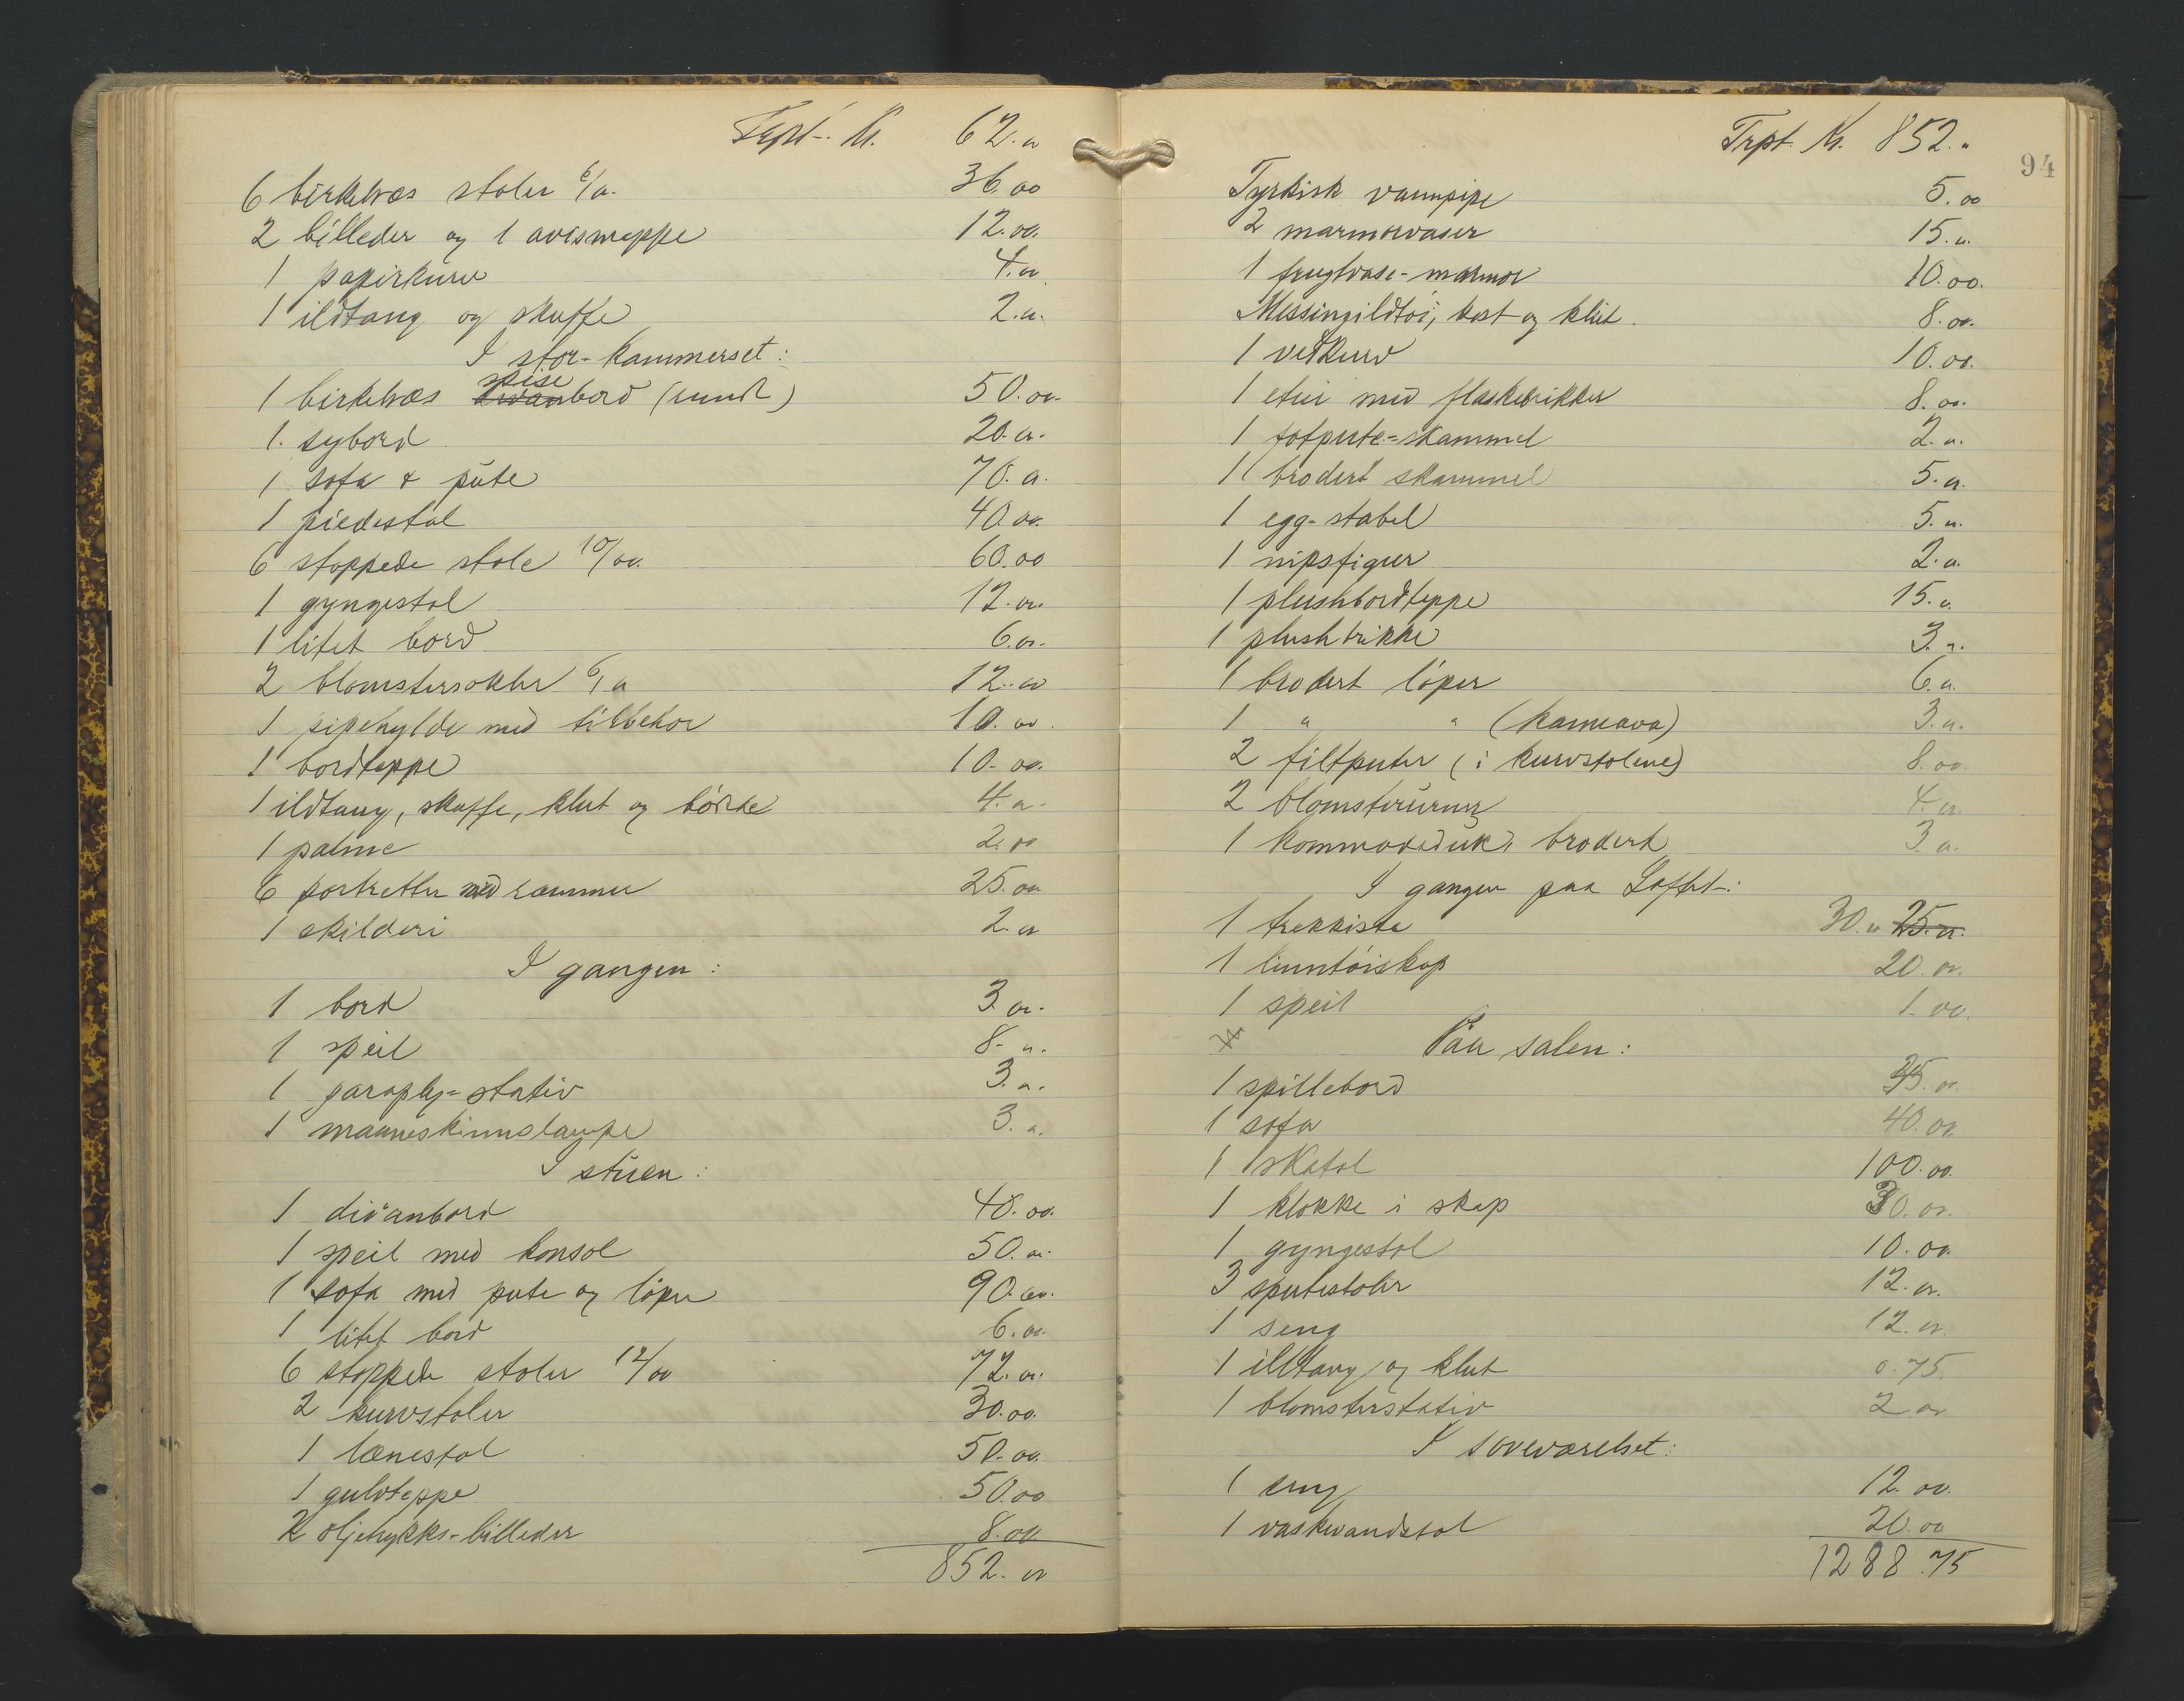 Trpt. Kr. 62.00
6 birketræs stoler 6/00. 36.00
2 billeder og 1 avismappe 12.00.
1 papirkurv 4.00
1 ildtang og skuffe 2.00.
I stor-kammerset:
1 birketræs spisebord (rundt) 50.00.
1. sybord 20.00.
1 sofa & pute 70.00.
1 piedestal 40.00.
6 stoppede stole 10/00. 60.00
1 gyngestol 12.00.
1 litet bord 6.00.
2 blomstersokler 6/00 12.00
1 pipehylde med tilbehør 10.00.
1 bordteppe 10.00.
1 ildtang, skuffe, klut og børste 4.00.
1 palme 2.00
6 portretter med rammer 25.00
1 skilderi 2.00
I gangen:
1 bord 3.00.
1 speil 8.00.
1 paraply-stativ 3.00.
1 maaneskinnslampe 3.00.
I stuen:
1 divanbord 48.00.
1 speil med konsol 50.00.
1 sofa med pute og löper 90.00.
1 litet bord 6.00.
6 stoppede stoler 12/00 72.00.
2 kurvstoler 30.00.
1 lænestol 50.00.
1 gulvteppe 50.00
2 oljetrykks-billeder 8.00.
852.00
Trpt. Kr. 852.00
94
Tyrkisk vannpipe 5.00
2 marmorvaser 15.00.
1 frugtvase-marmor 10.00.
Messingildtöi, kost og klut. 8.00.
1 vedkurv 10.00.
1 etui med flaskebrikker 8.00.
1 fotpute-skammel 2.00.
1 brodert skammel 5.00.
1 egg-stabel 5.00.
1 nipsfigur 2.00.
1 plushbordteppe 15.00.
1 plushbrikke 3.00.
1 brodert löper 6.00.
1 " " (kameava) 3.00.
2 filtputer (i kurvstolene) 8.00.
2 blomsterurner 4.00.
1 kommodeduk, brodert 3.00.
I gangen paa Loftet:
1 trekkiste 30.00 25.00.
1 linntöiskap 20.00.
1 speil 1.00.
Paa salen:
1 spillebord 35.00.
1 sofa 40.00.
1 skatol 100.00.
1 klokke i skap 30.00.
1 gyngestol 10.00.
3 sputestoler 12.00.
1 seng 12.00.
1 ildtang og klut 0.75.
1 blomsterstativ 2.00
I soveværelset:
1 seng 12.00.
1 vaskevandstol 20.00
1288.75